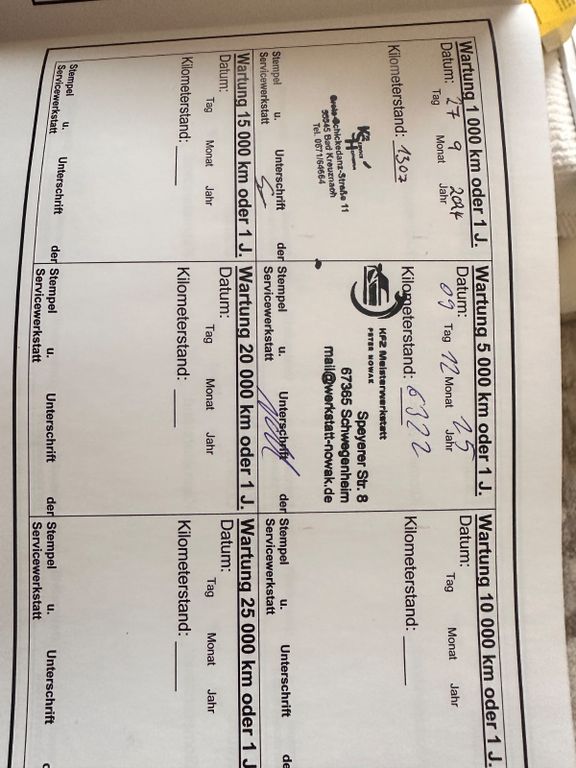 Wartung 1 000 km oder 1 J.
Datum: 27 9 2024
Tag Monat Jahr
Kilometerstand: 1307
Schickedanz-Straße 11
55545 Bad Kreuznach
Tel. 0671/64664
Stempel u. Unterschrift der
Servicewerkstatt
Wartung 5 000 km oder 1 J.
Datum: 09 12 25
Tag Monat Jahr
Kilometerstand: 6322
KFZ Meisterwerkstatt
PETER NOWAK
Speyerer Str. 8
67365 Schwegenheim
mail@werkstatt-nowak.de
Stempel u. Unterschrift der
Servicewerkstatt
Wartung 10 000 km oder 1 J.
Datum:
Tag Monat Jahr
Kilometerstand:
Stempel u. Unterschrift de
Servicewerkstatt
Wartung 15 000 km oder 1 J.
Datum:
Tag Monat Jahr
Kilometerstand:
Stempel u. Unterschrift der
Servicewerkstatt
Wartung 20 000 km oder 1 J.
Datum:
Tag Monat Jahr
Kilometerstand:
Stempel u. Unterschrift der
Servicewerkstatt
Wartung 25 000 km oder 1 J
Datum:
Tag Monat Jahr
Kilometerstand:
Stempel u. Unterschrift
Servicewerkstatt